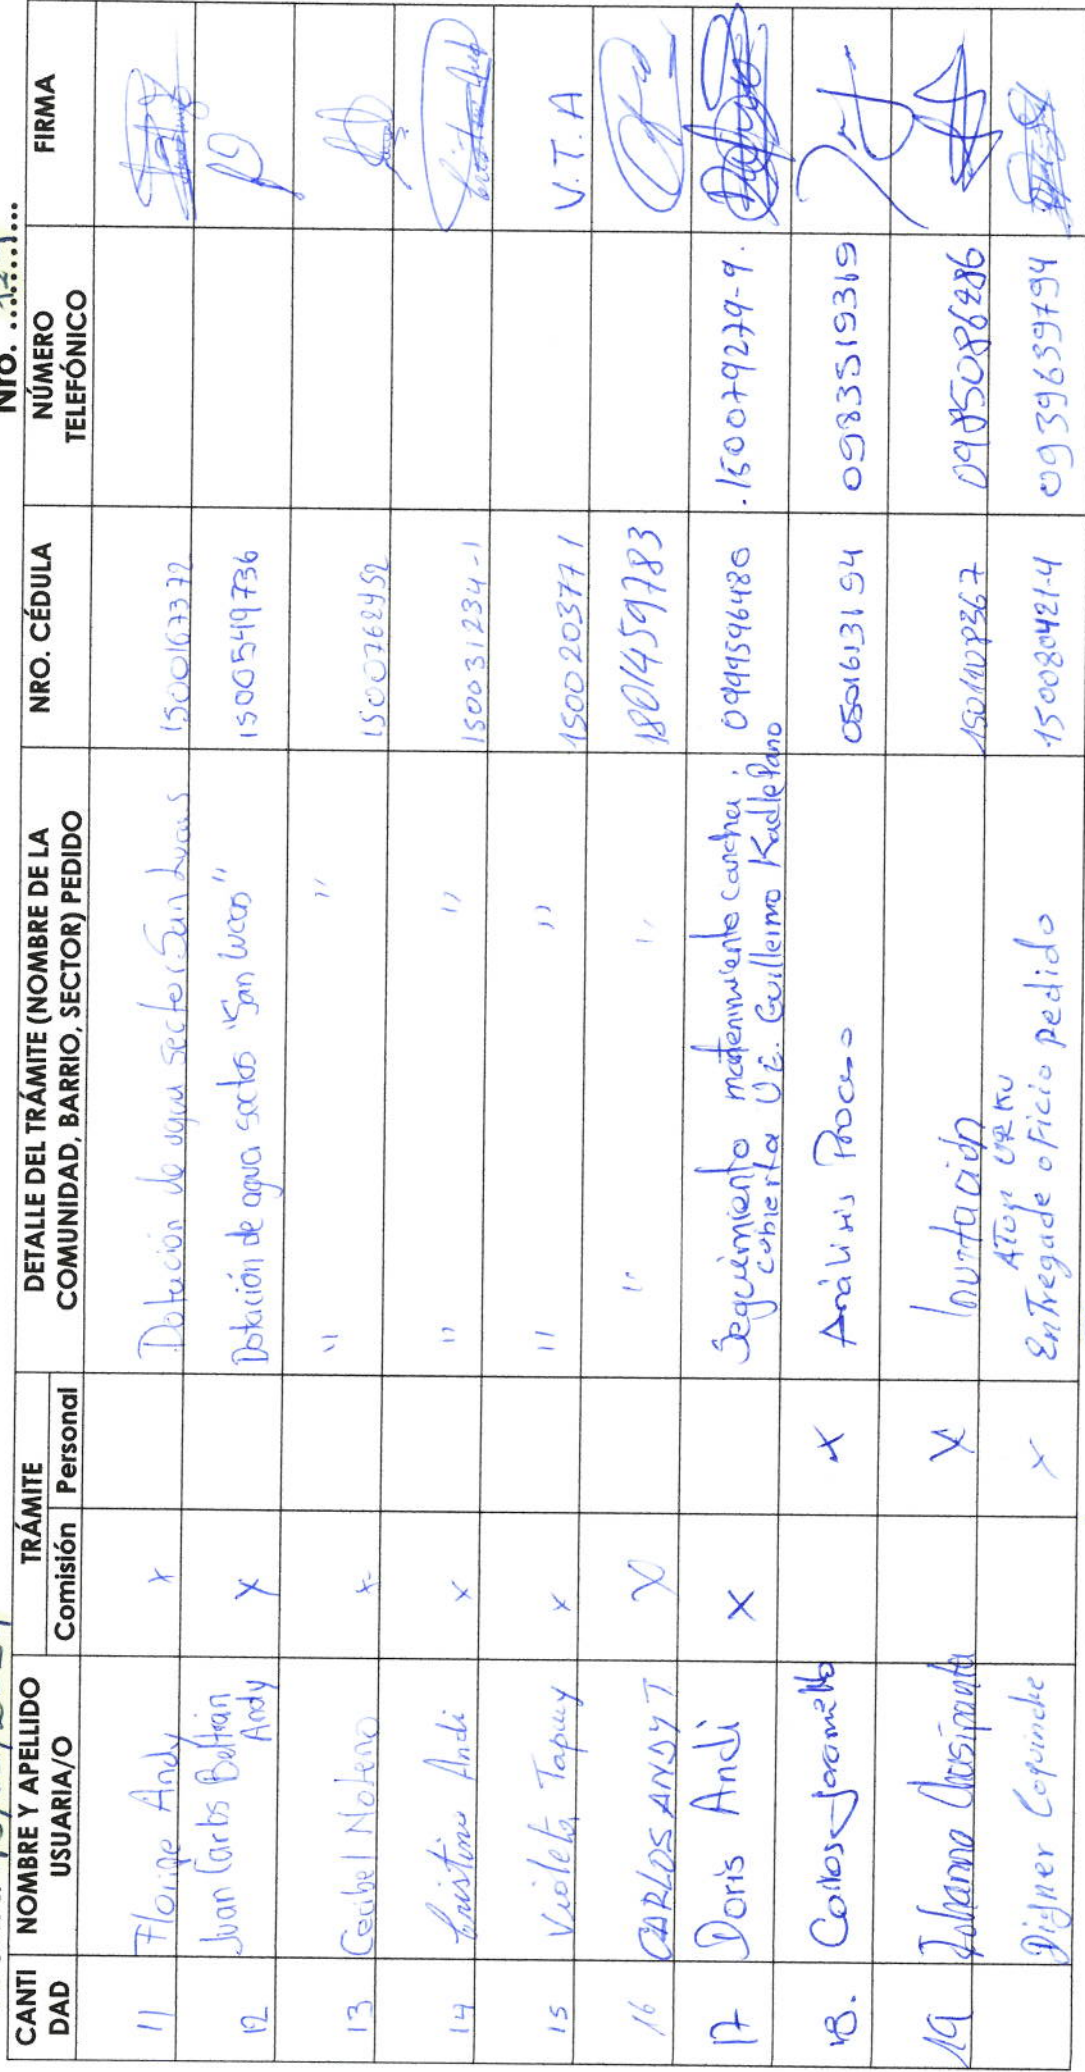 Nro.
CANTI DAD | NOMBRE Y APELLIDO USUARIA/O | TRÁMITE Comisión Personal | DETALLE DEL TRÁMITE (NOMBRE DE LA COMUNIDAD, BARRIO, SECTOR) PEDIDO | NRO. CÉDULA | NÚMERO TELEFÓNICO | FIRMA
11 Florige Andy x Dotación de agua sector San Lucas 1500167372
12 Juan Carlos Beltrán Andy x Dotación de agua sector "San Lucas" 1500549736
13 Cecibel Noteno x " " 1500762452
14 Cristina Andi x " " 150031234-1
15 Violeta Tapuy x " " 1500203771 V.T.A
16 CARLOS ANDY T x " " 1801459783
17 Doris Andi x Seguimiento mantenimiento cancha cubierta U.E. Guillermo Kadle Pano 0999596480 .150079279-9.
18. Carlos Jaramillo x Análisis Proceso 0501613194 0983519319
19 Johanna Chusipanta x Invitación 0985086286
Digner Coquinche x Atun URKU Entregade oficio pedido 150080421-4 0939639794